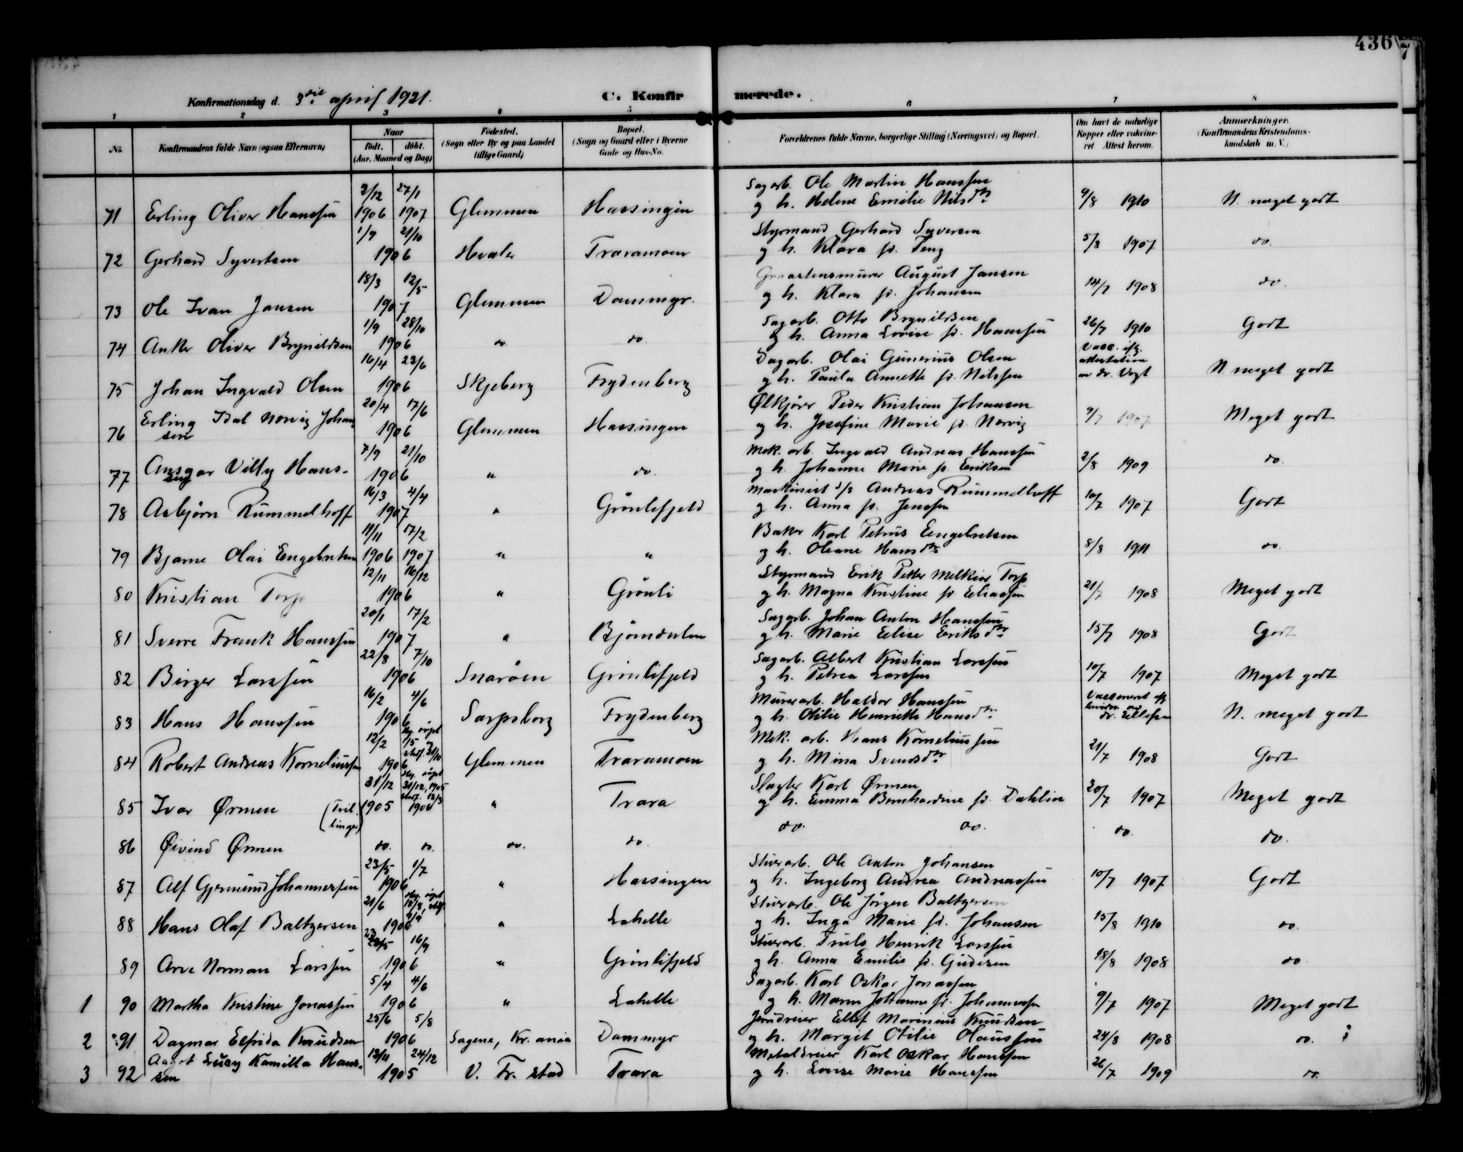 436
7
Konfirmationsdag d. 3die april 1921. C. Konfir merede.
1 2 3 4 5 6 7 8
No. Konfirmandens fulde Navn (ogsaa Efternavn) Naar født. døbt. (Aar, Maaned og Dag) Fødested. (Sogn eller By og paa Landet tillige Gaard) Bopæl. (Sogn og Gaard eller i Byerne Gade og Hus-No. Forældrenes fulde Navne, borgerlige Stilling (Næringsvei) og Bopæl. Om havt de naturlige Kopper eller vakcineret Attest herom. Anmærkninger. (Konfirmandens Kristendomskundskab m. V.)
2/12 27/1 Sagarb. Ole Martin Hanssen
71 Erling Oliver Hanssen 1906 1907 Glemmen Hassingen g h. Helene Emilie Nilsdtr 9/8 1910 N. meget godt
1/9 21/10 Styrmand Gerhard Syversen
72 Gerhard Syvertsen 1906 Hvaler Traramoen g h. Klara f. 5/8 1907 do.
18/3 12/5 August Jansen
73 Ole Ivan Jansen 1907 Glemmen Dammyr. g h. Klara f. Johansen 14/7 1908 do.
1/9 28/10 Sagarb. Otto Brynildsen
74 Anker Oliver Brynildsen 1906 do do. g h. Anna Lovise f. Hanssen 26/7 1910 Godt
16/4 23/6 Dagarb. Olai Gunerius Olsen Vacc. ifg. attestation
75 Johan Ingvald Olsen 1906 Skjeberg Frydenberg g h. Paula Annette f. Nilssen av dr. Vogt N meget godt
20/4 17/6 Ølkjører Peder Kristian Johansen
76 Erling Idal Norvig Johansen 1906 Glemmen Hassingen g h. Josefine Marie f. Norvig 9/7 1907 Meget godt
7/9 21/10 Mek. arb. Ingvald Andreas Hanssen
77 Ansgar Villy Hanssen 1906 " do. g h. Johanne Marie f. Eriksen 2/8 1909 do.
16/3 4/4 Maskinist Andreas Rummelhoff
78 Asbjørn Rummelhoff 1907 " Grønlifjeld g h. Anna f. Jenssen 10/7 1907 Godt
11/11 17/2 Baker Karl Petrus Engebretsen
79 Bjarne Olai Engebretsen 1906 1907 " " g h. Oleane Hansdtr 8/8 1911 do.
12/11 16/12 Styrmand Erik Petter Melkior Torp
80 Kristian Torp 1906 " Grønli g h. Magna Kristine f. Eliassen 21/7 1908 Meget godt
20/1 17/2 Sagarb. Johan Anton Hanssen
81 Sverre Frank Hanssen 1907 " Bjørndalen g h. Marie Elise Eriksdtr 15/7 1908 Godt
22/8 7/10 Sagarb. Albert Kristian Larssen
82 Birger Larssen 1906 Snarøen Grønlifjeld g h. Petrea Larssen 10/7 1907 Meget godt
16/2 4/6 Murerarb. Haldor Hanssen
83 Hans Hanssen 1906 Sarpsborg Frydenberg g h. Otilie Henriette Hansdtr dr. Ellefsen N. meget godt
12/2 Mek. arb. Hans Korneliussen
84 Robert Andreas Korneliussen 1906 Glemmen Traramoen g h. Mina Svendsdtr 21/7 1908 Godt
31/12 Slagter Karl Ørmen
85 Ivar Ørmen (Tvillinger) 1905 " Trara g h. Emma Bernhardine f. Dahlin 20/7 1907 Meget godt
86 Øivind Ørmen do. do. do. do. do. do. do. do.
23/5 1/7 Stuerarb. Ole Anton Johansen
87 Alf Gjermund Johannessen 1906 " Hassingen g h. Ingeborg Andrea Andreassen 10/7 1907 Godt
21/6 Stuerarb. Ole Jørgen Baltzersen
88 Hans Olaf Baltzersen 1906 " Lahelle g h. Inga Marie f. Johansen 15/8 1910 do.
16/9 Stuerarb. Truls Henrik Larssen
89 Arve Norman Larssen 1906 " Grønlifjeld g h. Anna Emilie f. Gudesen 18/8 1908 do.
5/4 4/6 Sagarb. Karl Oskar Jonassen
1 90 Martha Kristine Jonassen 1906 " Lahelle g h. Maren Johanne f. Johannessen 9/7 1907 Meget godt
25/6 5/8 Jerndreier Ellef Marinius Knudsen
2 91 Dagmar Elfrida Knudsen 1906 Sagene, Kr.ania Dammyr g h. Margit Otilie Olaussen 24/8 1908 do.
13/11 24/12 Metaldreier Karl Oskar Hanssen
3 92 Aagot Lucy Kamilla Hanssen 1905 V. Fr.stad Trara g h. Lovise Marie Hanssen 26/7 1909 do.